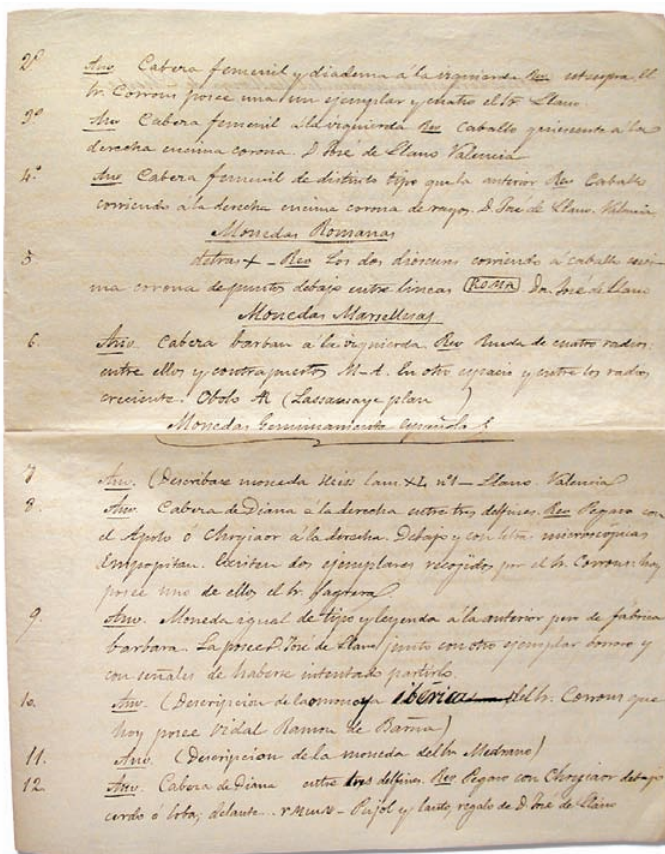 2º Anv Cabeza femenil y diadema á la izquierda Rev ut supra. El
Sr. Corrous posee un ejemplar y cuatro el Sr. Llano.
3º Anv Cabeza femenil á la izquierda Rev Caballo á la
derecha encima corona. D. José de Llano Valencia
4º Anv Cabeza femenil de distinto tipo que la anterior Rev Caballo
corriendo á la derecha encima corona de rayos. D. José de Llano. Valencia
Monedas Romanas
5 detras X - Rev Los dos dioscuros corriendo á caballo enci-
ma corona de puntos debajo entre lineas ROMA Dn. José de Llano
Monedas Marsellesas
6. Anv. Cabeza barbara á la izquierda. Rev Rueda de cuatro radios:
entre ellos y contrapuestos M-A. En otro espacio y entre los radios
creciente. Obolo AR (Lassausaye plan )
Monedas Genuinamente española
7 Anv. (Describase moneda Heiss lam. XL nº 1 - Llano. Valencia
8. Anv. Cabeza de Diana á la derecha entre tres delfines. Rev Pegaso con
el Apolo ó Chrysaor á la derecha. Debajo y con letras microscópicas
Emporitan. Existen dos ejemplares recojidos por el Sr. Corrous: hoy
posee uno de ellos el Sr. Sagrera
9. Anv. Moneda igual de tipo y leyenda á la anterior pero de fábrica
barbara. La posee D. José de Llano junto con otro ejemplar borroso y
con señales de haberse intentado partirlo.
10. Anv. (Descripcion de la moneda ibérica del Sr. Corrous que
hoy posee Vidal Ramon de Barña)
11. Anv. (Descripcion de la moneda del Sr. Medrano)
12. Anv. Cabeza de Diana entre tres delfines. Rev Pegaso con Chrysaor debajo
cerdo ó loba; delante - Pujol y Santo, regalo de D. José de Llano